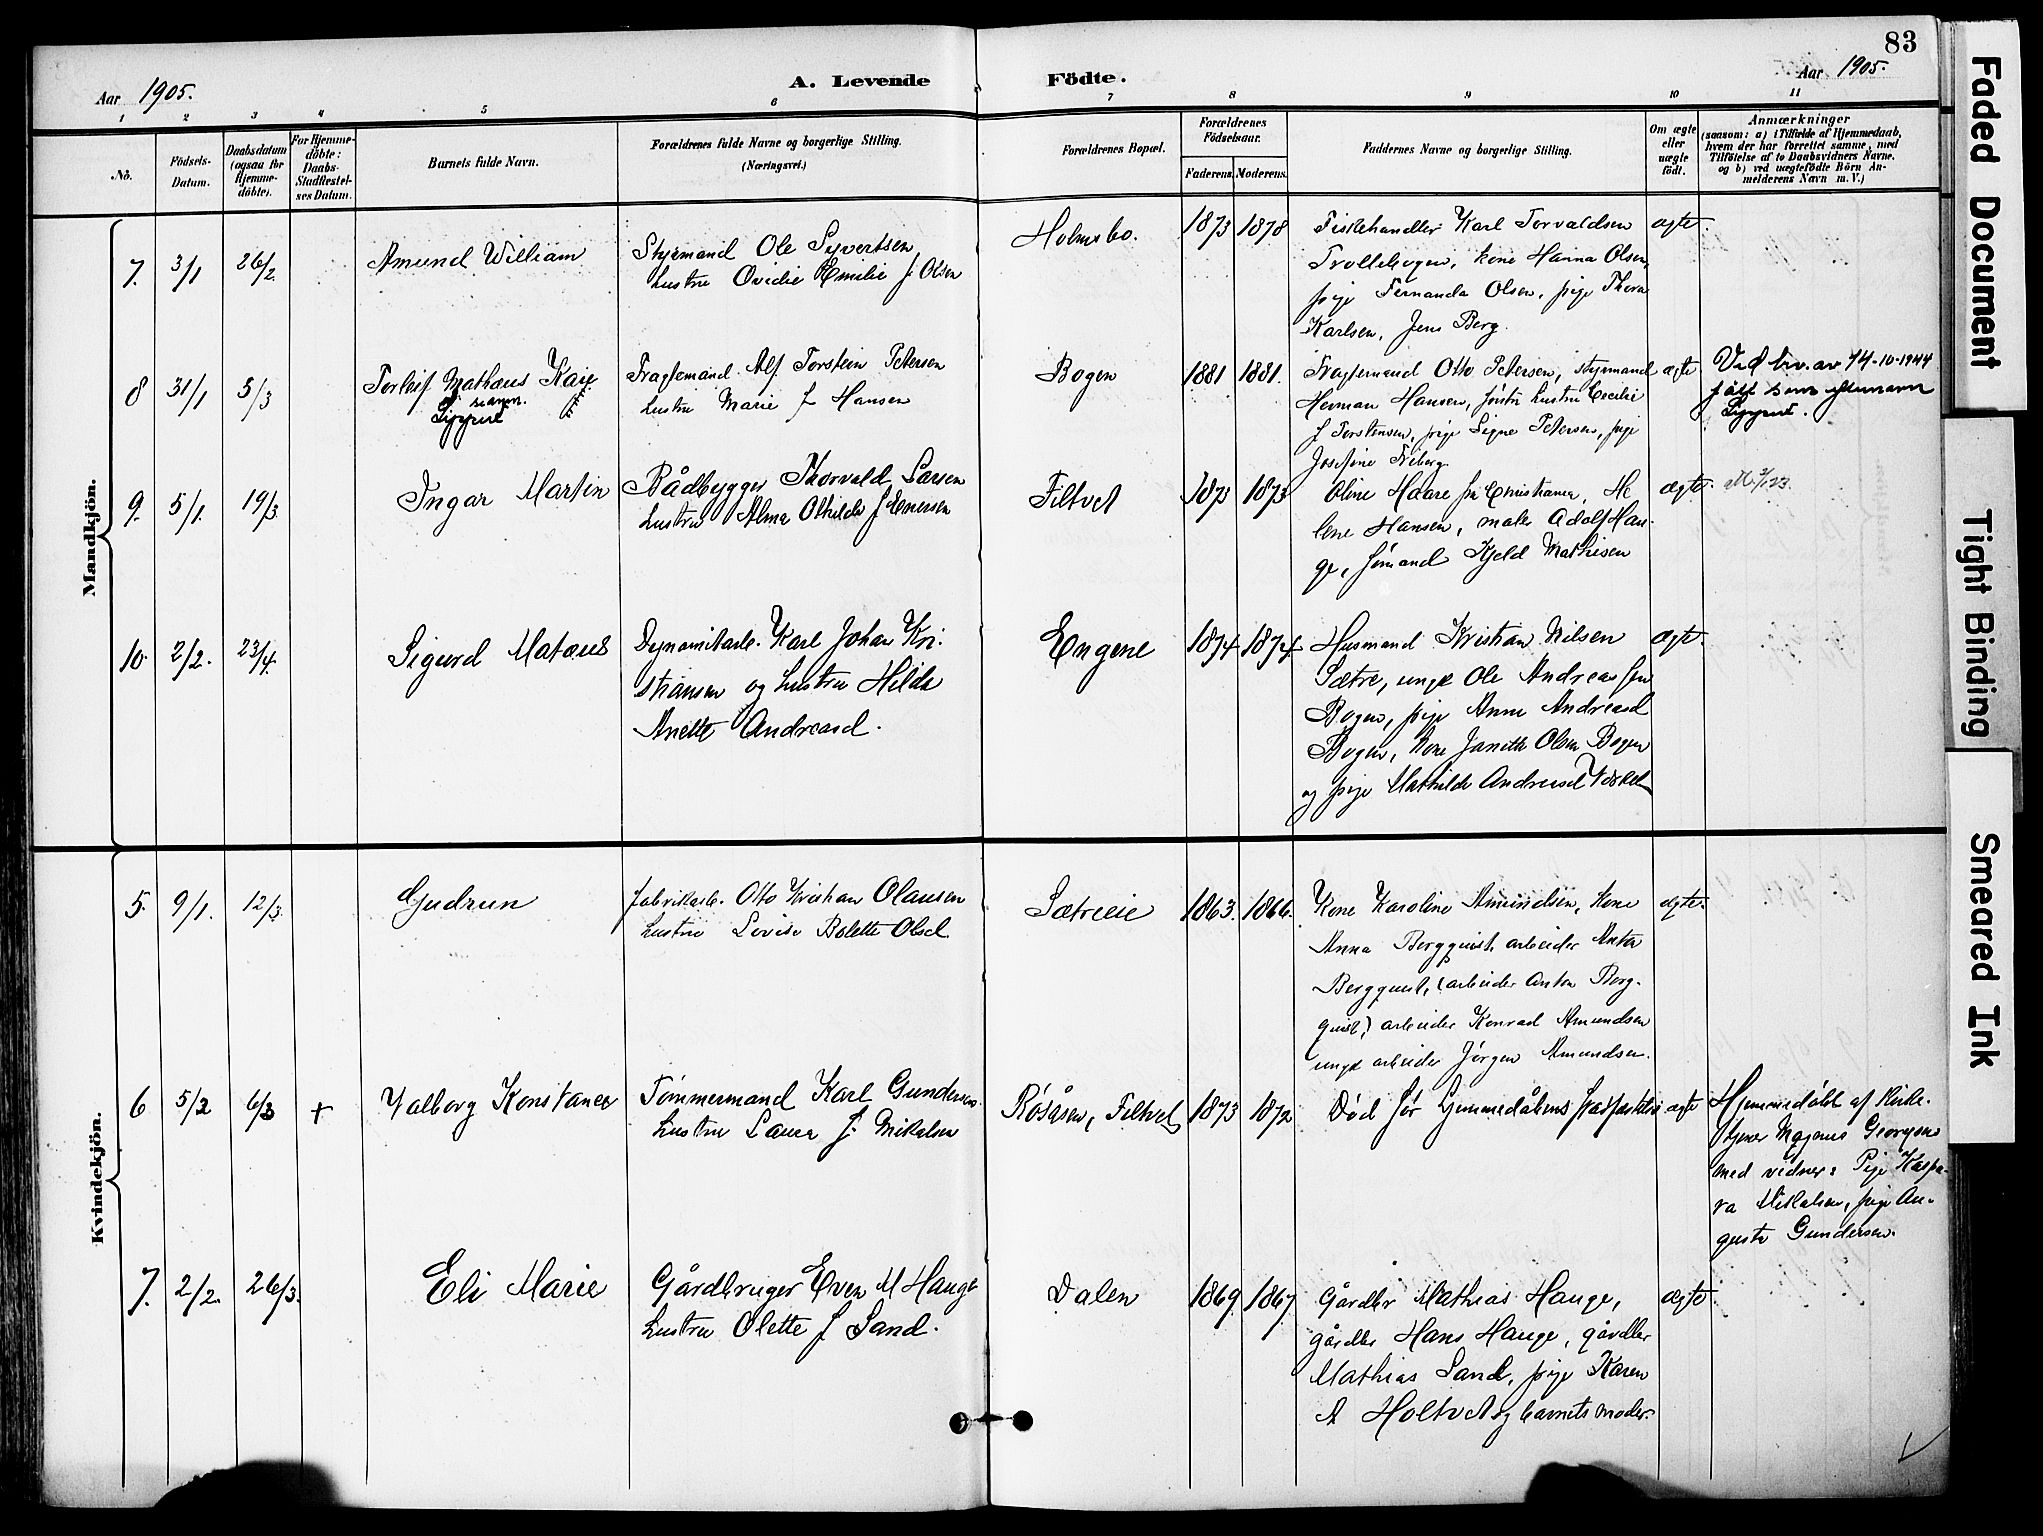 83
Aar 1905.
A. Levende Födte.
Aar 1905.
1 2 3 4 5 6 7 8 9 10 11
No.
Födsels-Datum.
Daabsdatum (ogsaa for Hjemme-döbte).
For Hjemme-döbte: Daabs-Stadfæstel-ses Datum.
Barnets fulde Navn.
Forældrenes fulde Navne og borgerlige Stilling.
(Næringsvei.)
Forældrenes Bopæl.
Forældrenes Födselsaar.
Faderens. Moderens.
Faddernes Navne og borgerlige Stilling.
Om ægte eller uægte födt.
Anmærkninger
(saasom: a) i Tilfælde af Hjemmedaab,
hvem der har forrettet samme, med
Tilföielse af to Daabsvidners Navne,
og b) ved uægtefödte Börn An-
melderens Navn m. V.)
Mandkjön.
7. 3/1 26/2 Amund William
Styrmand Ole Syvertsen
hustru Ovidie Emilie f Olsen
Holmsbo. 1873 1878
Fiskehandler Karl Torvaldsen
Trollebogen, kone Hanna Olsen,
pige Fernanda Olsen, pige Thora
Karlsen, Jens Berg.
ægte.
8 31/1 5/3 Torleif Mathæus Kaie
Fragtemand Alf Torstein Petersen
hustru Marie f Hansen
Bogen 1881 1881.
Fragtemand Otto Petersen, styrmand
Herman Hansen, hustru Cecilie
f Torstensen, pige Signe Petersen, pige
Josefine Friberg.
ægte
Ved bev. av 14-10-1944
fått som efternavn
9. 5/1. 19/3. Ingar Martin
Bådbygger Thorvald Larsen
hustru Alma Othilde f Enersen
Filtvet 1873 1873
Oline Haare fra Christiania, He
lene Hansen, maler Adolf Hau-
ge, sømand Kjeld Mathisen
ægte.
10. 2/2. 23/4. Sigurd Matæus
Dynamitarb. Karl Johan Kri-
stiansen og hustru Hilda
Anette Andreasd.
Engene 1874 1874
Husmand Kristian Nilsen
Sætre, ungk Ole Andreassen
Bogen, pige Anne Andreasd
Bogen, kone Janette Olsen Bogen
og pige Mathilde Andreasd
ægte.
Kvindekjön.
5. 9/1. 12/3. Gudrun
fabrikarb. Otto Kristian Olausen
hustru Lovise Bolette Olsd.
Sætreeie 1863. 1866.
Kone Karoline Amundsen, Kone
Anna Bergquist, arbeider Anton
Bergquist, (arbeider Anton Berg-
quist,) arbeider Konrad Amundsen
ungk arbeider Jørgen Amundsen.
ægte.
6 5/2 6/3 + Valborg Konstance
Tømmermand Karl Gundersen
hustru Laura f. Mikalsen
Røsåsen, Filtvet 1873 1872
Død før hjemmedåbens stadfæstelse
ægte
Hjemmedøbt af Kirke-
tjener Magnus Georgsen
med vidner: Pige Kaspa-
ra Mikalsen, pige Au-
gusta Gundersen.
7. 2/2. 26/3. Eli Marie
Gårdbruger Even M Hauge
hustru Olette f Sand.
Dalen 1869. 1867
Gårdbr Mathias Hauge,
gårdbr Hans Hauge, gårdbr
Mathias Sand, pige Karen
A Holtvet og barnets moder.
ægte
Faded Document
Tight Binding
Smeared Ink